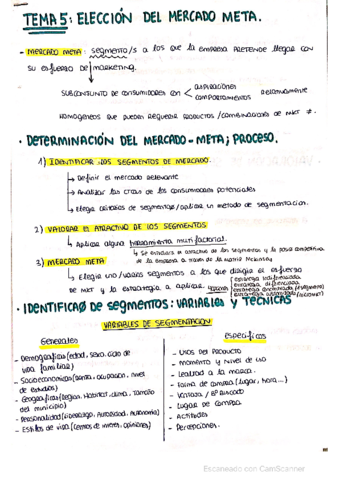 TEMA 5: ELECCIÓN DEL MERCADO META.
- MERCADO META: segmento/s a los que la empresa pretende llegar con
su esfuerzo de marketing.
SUBCONJUNTO DE CONSUMIDORES CON < aspiraciones
comportamientos
RELATIVAMENTE
HOMOGÉNEOS que pueden requerir productos/combinaciones de MKT ≠.
· DETERMINACIÓN DEL MERCADO-META; PROCESO.
1) IDENTIFICAR LOS SEGMENTOS DE MERCADO.
↳ Definir el mercado relevante
↳ Analizar las de los consumidores potenciales
↳ Elegir criterios de segmentac/aplicar un método de segmentacion.
2) VALORAR EL ATRACTIVO DE LOS SEGMENTOS
↳ Aplicar alguna herramienta multifactorial.
↳ Se evalúa el atractivo de los segmentos y la posic competitiva
de la empresa a través de la matriz McKinsey
3) MERCADO META
↳ Elegir uno/varios segmentos a los que dirigir el esfuerzo
de MKT y la estrategia a aplicar.
estrategia indiferenciada
estrategia diferenciada
estrategia concentrada
estrategia
· IDENTIFICAÓ DE SEGMENTOS: VARIABLES Y TÉCNICAS
VARIABLES DE SEGMENTACIÓN
Generales
- Demográficas (edad, sexo, ciclo de
vida familiar)
- Socioeconómicas (renta, ocupación, nivel
de estudios)
- Geográficas (Región, Hábitat, clima, Tamaño
del municipio)
- Personalidad (Liderazgo, Autoridad, Autonomía)
- Estilos de vida (centros de interés, opiniones)
Específicas
- USOS DEL PRODUCTO
- MOMENTO Y NIVEL DE USO
- Lealtad a la marca.
- Forma de compra (lugar, hora...)
- Ventaja / Bº BUSCADO
- LUGAR DE COMPRA
- ACTITUDES
- Percepciones.
Escaneado con CamScanner